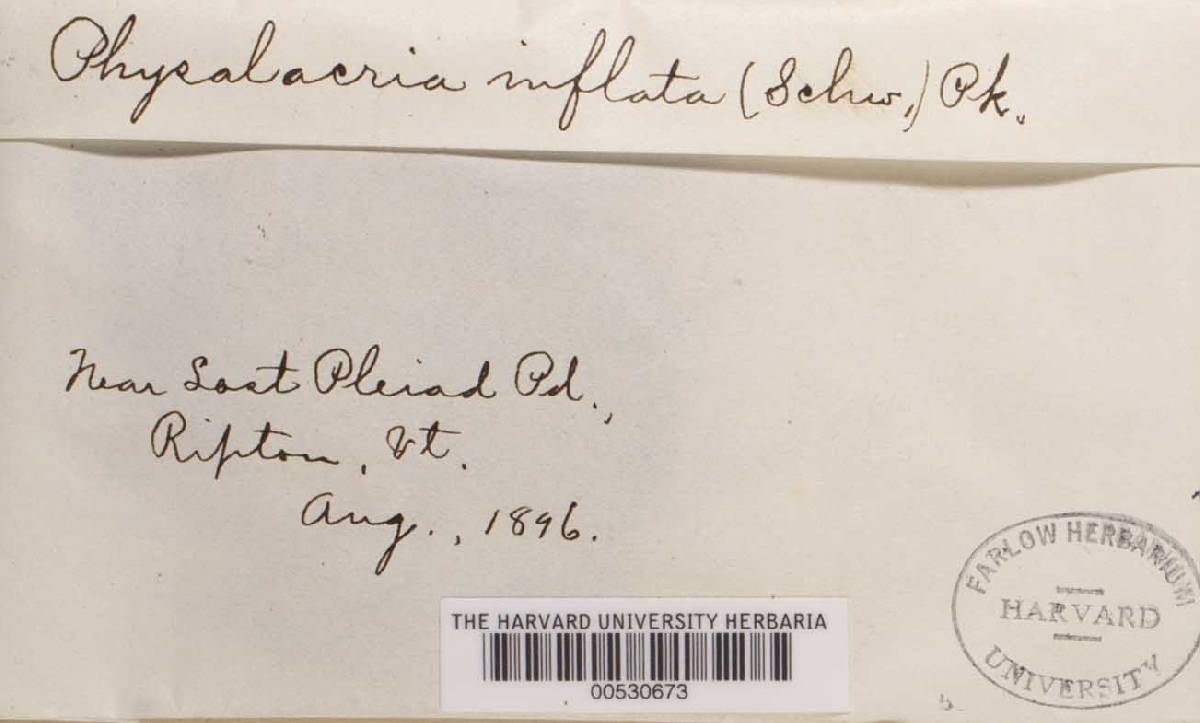 Physalacria inflata (Schw.,) Pk.
Near Lost Pleiad Pd.,
Ripton, Vt.
Aug., 1896.
THE HARVARD UNIVERSITY HERBARIA
00530673
FARLOW HERBARIUM
HARVARD
UNIVERSITY